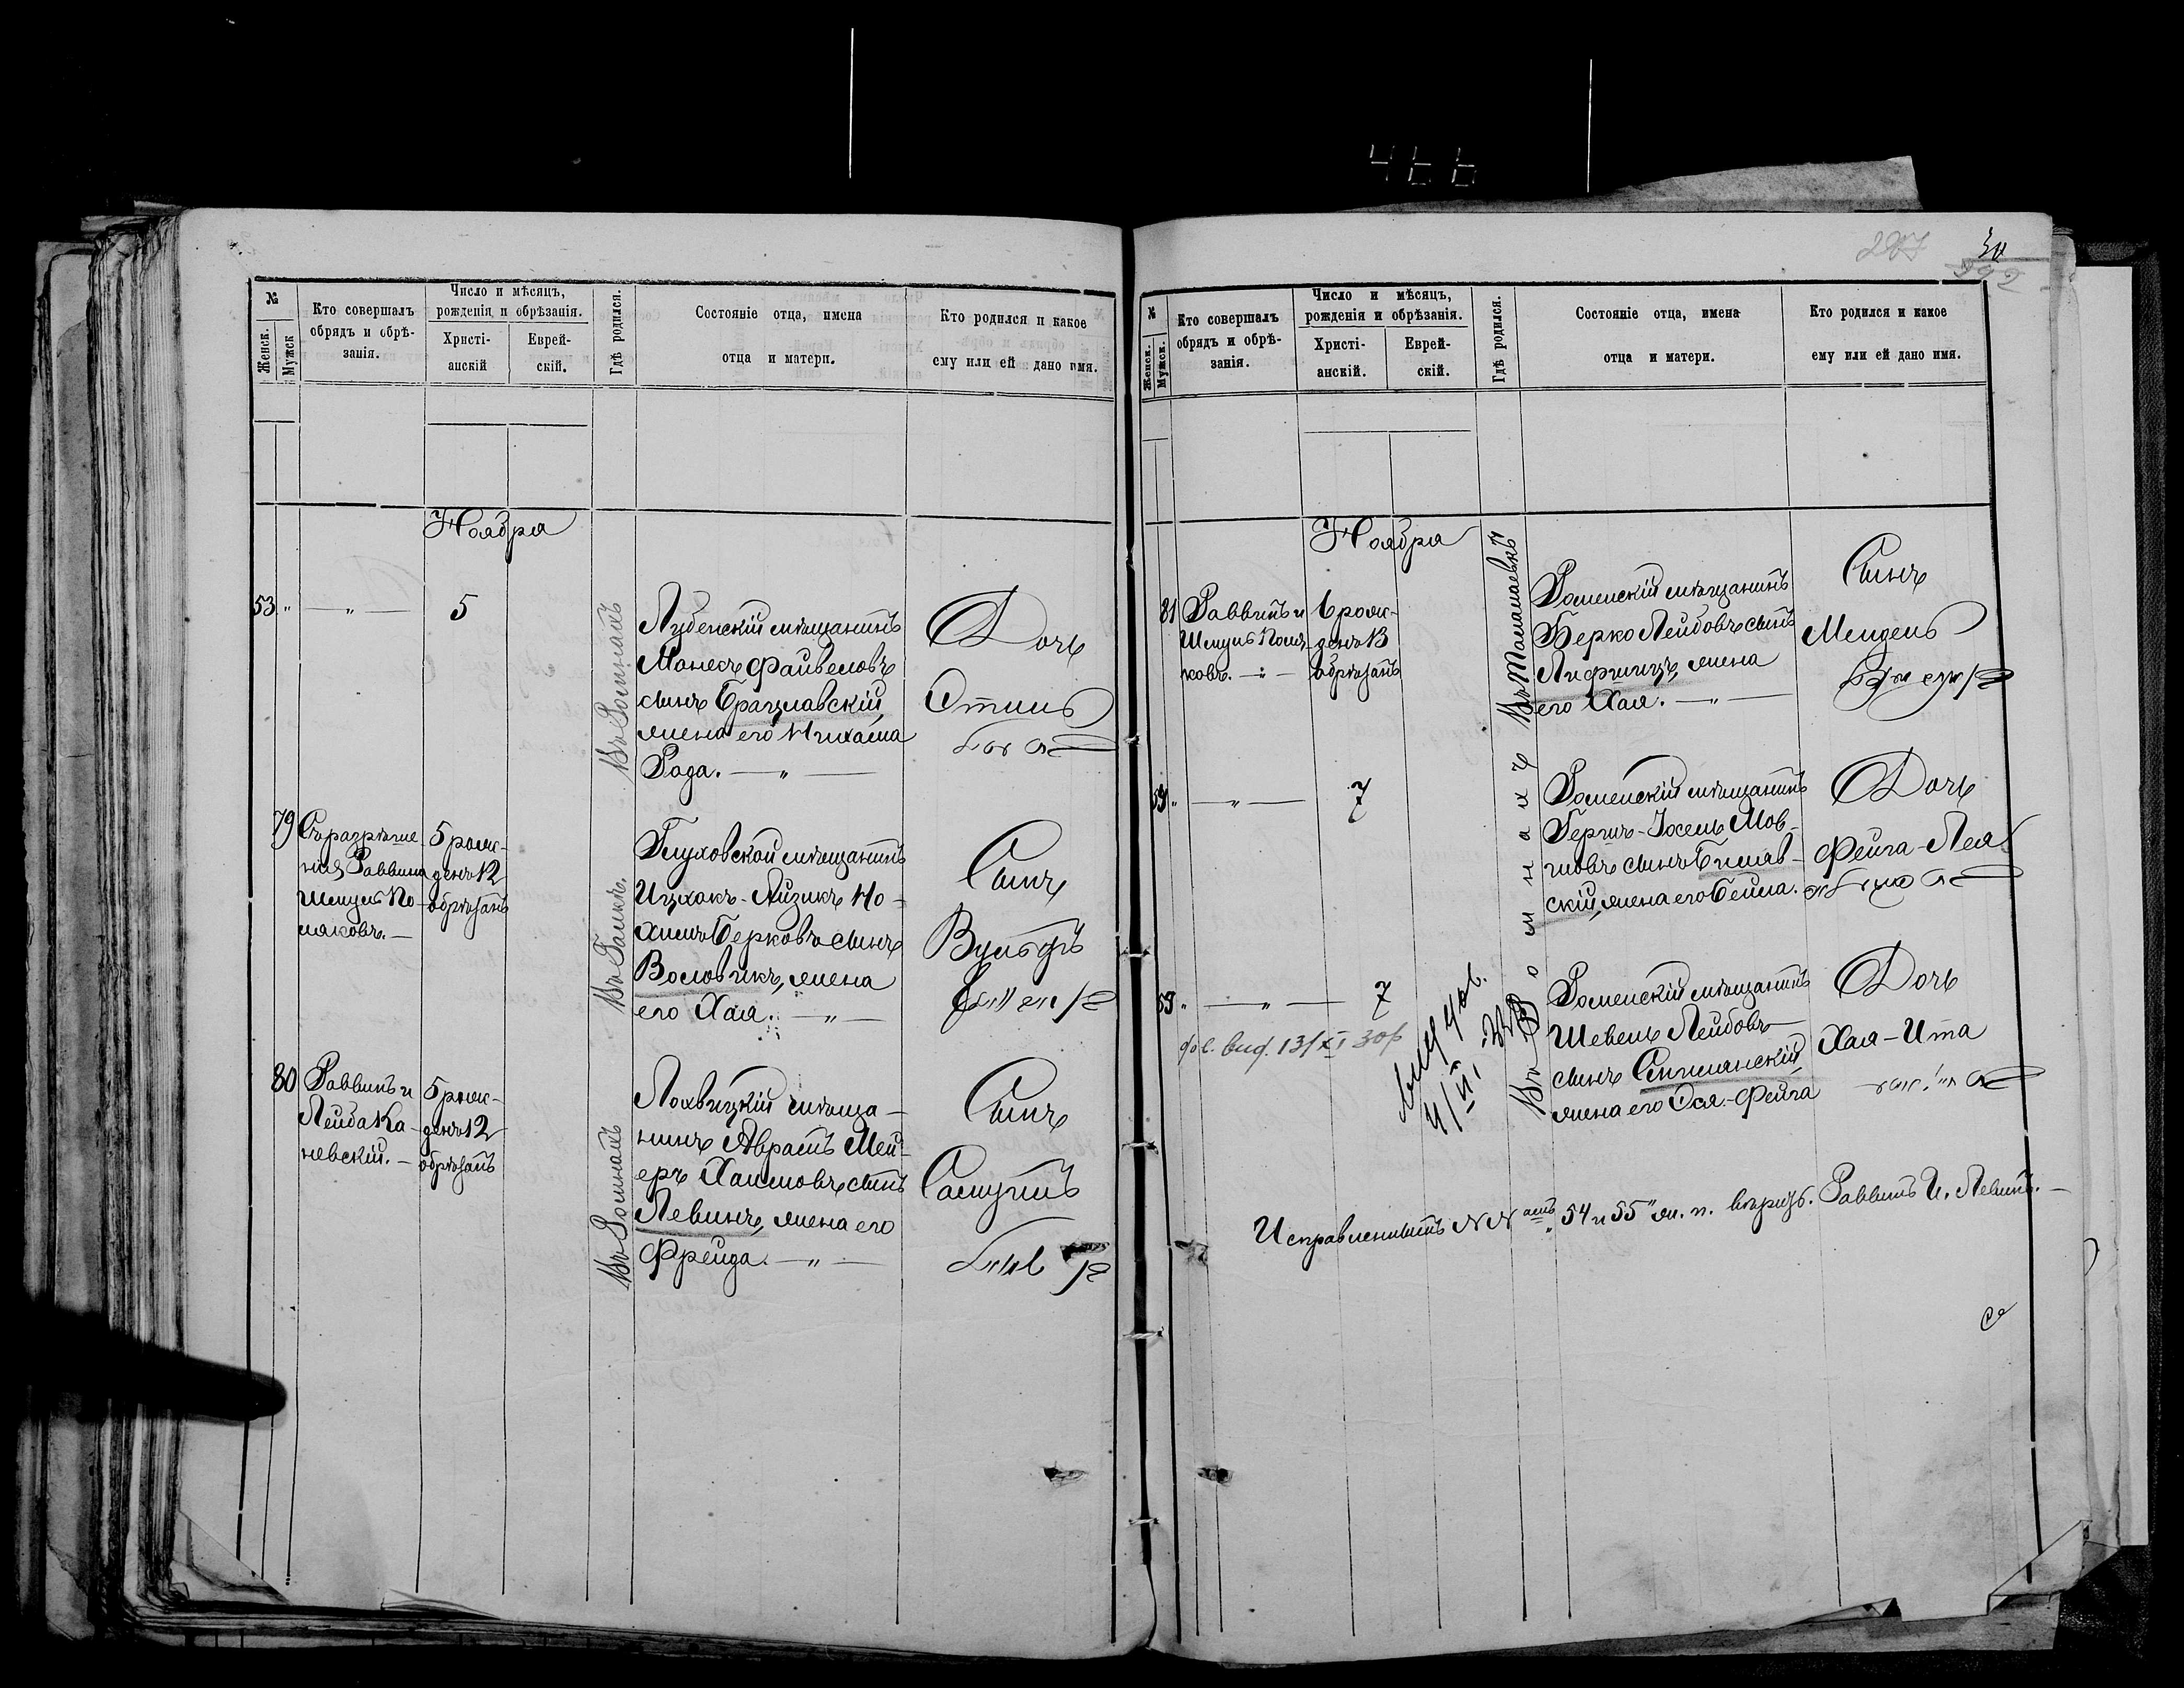 466
207
№
Женск.
Мужск
Кто совершалъ
обрядъ и обрѣ-
занія.
Число и мѣсяцъ,
рожденія и обрѣзанія.
Христі-
анскій
Еврей-
скій.
Гдѣ родился.
Состояніе отца, имена
отца и матери.
Кто родился и какое
ему или ей дано имя.
Ноября
53 „
— „ —
5
Въ Ромнахъ
Лубенскій мѣщанинъ
Монесъ Файвеловъ
сынъ Брацлавскій,
жена его Нихама
Рода. — „ —
Дочь
Этиль
79
Съ разрѣше
нія Раввина
Шмуль По-
ляковъ. —
5 рож-
денъ 12
обрѣзанъ
Глуховской мѣщанинъ
Ицхокъ-Айзикъ Но-
химъ Берковъ сынъ
Воловикъ, жена
его Хая. — „ —
Сынъ
Вульфъ
80
Раввинъ и
Лейба Ка-
невскій. —
5 рож-
денъ 12
обрѣзанъ
Въ Ромнахъ
Лохвицкій мѣща-
нинъ Аврамъ Мей-
еръ Хаимовъ сынъ
Левинъ, жена его
Фрейда. — „ —
Сынъ
Самуилъ
№
Женск.
Мужск.
Кто совершалъ
обрядъ и обрѣ-
занія.
Число и мѣсяцъ,
рожденія и обрѣзанія.
Христі-
анскій.
Еврей-
скій.
Гдѣ родился.
Состояніе отца, имена
отца и матери.
Кто родился и какое
ему или ей дано имя.
Ноября
81
Раввинъ и
Шмуль Поля-
ковъ. — „ —
6 рож-
денъ 13
обрѣзанъ
Роменскій мѣщанинъ
Берко Лейбовъ сынъ
Лифшицъ, жена
его Хая. — „ —
Сынъ
Мендель
— „ —
7
Въ Ромнахъ
Роменскій мѣщанинъ
Гершъ-Іосель Мов-
шовъ сынъ
скій, жена его Бейла.
Дочь
Фейга-Лея
— „ —
7
Роменскій мѣщанинъ
Шевель Лейбовъ
сынъ
жена его Эся-Фейга
Дочь
Хая-Ита
Исправленнымъ №№ амъ 54 и 55 „ж. п. вѣрить. Раввинъ И. Левинъ. —